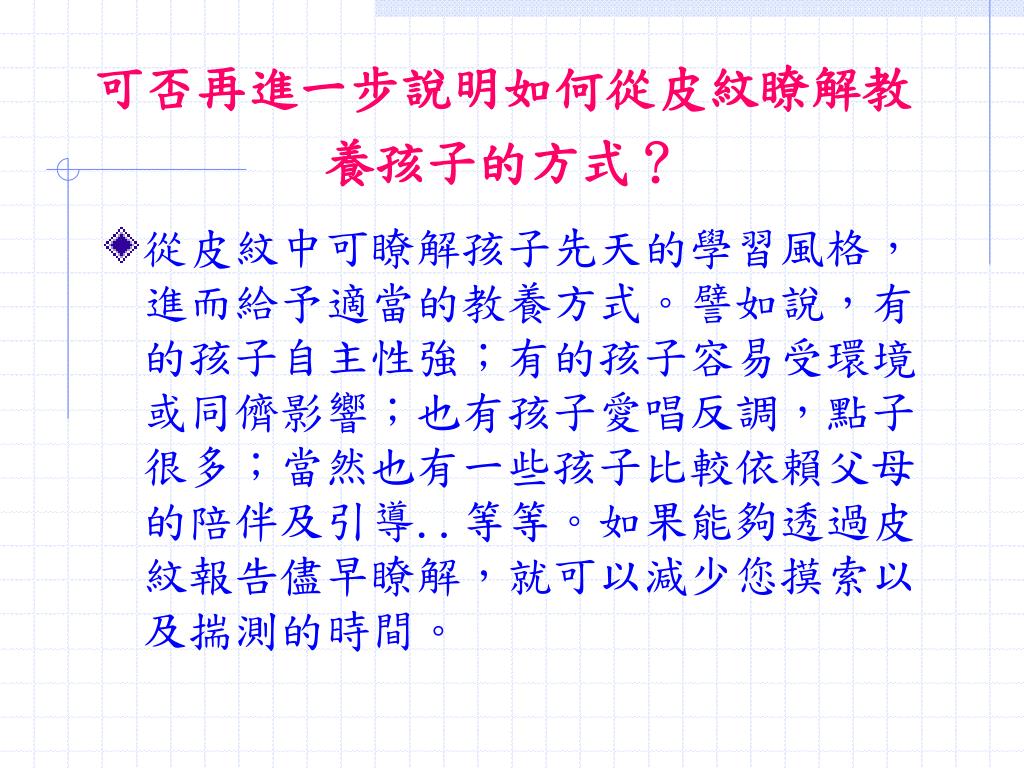 可否再進一步說明如何從皮紋瞭解教
養孩子的方式？
從皮紋中可瞭解孩子先天的學習風格，
進而給予適當的教養方式。譬如說，有
的孩子自主性強；有的孩子容易受環境
或同儕影響；也有孩子愛唱反調，點子
很多；當然也有一些孩子比較依賴父母
的陪伴及引導..等等。如果能夠透過皮
紋報告儘早瞭解，就可以減少您摸索以
及揣測的時間。